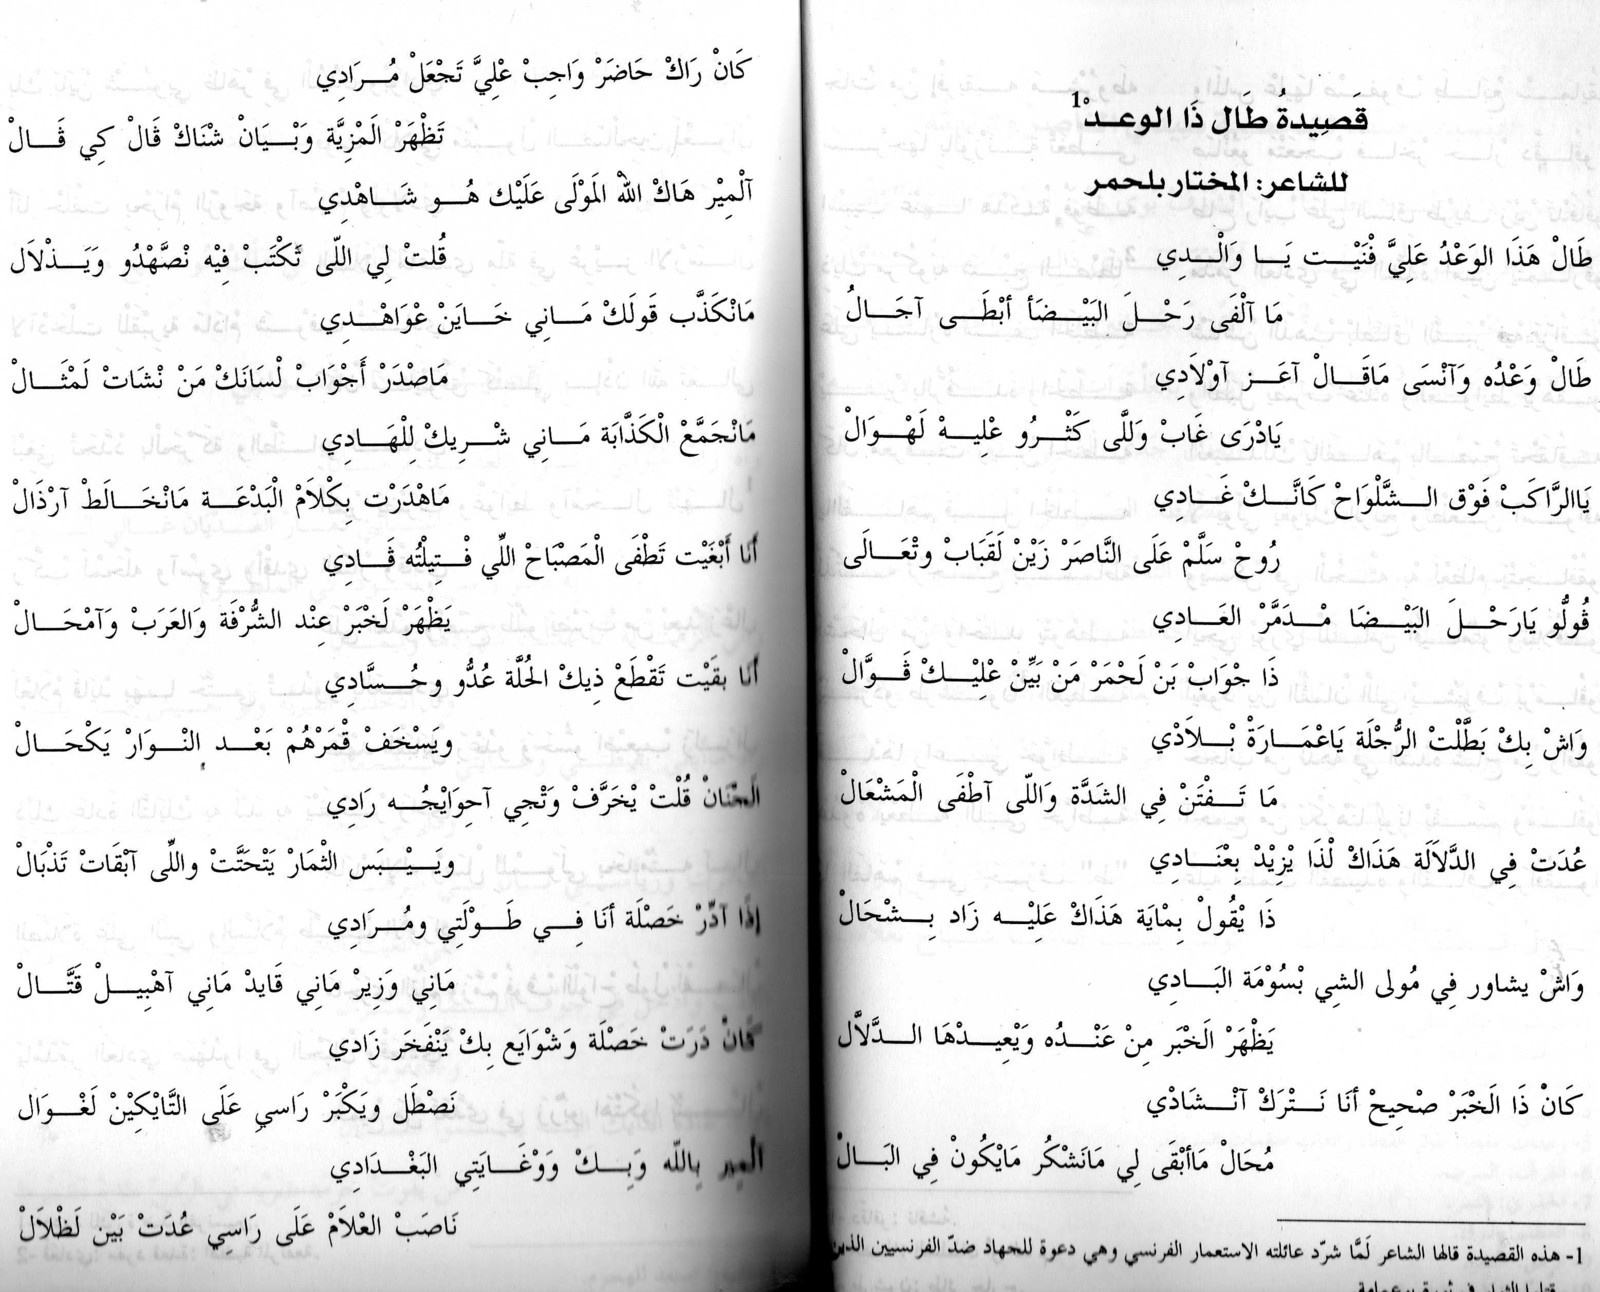 قَصِيدةُ طَال ذَا الوعـدْ1
للشاعر: المختار بلحمر
طَالْ هَذَا الوَعْدُ عَلِيَّ فْنَيْـــت يَـــا وَالْـــدِي
مَا آلْفَى رَحْـــلَ البَيْــضَأ أبْطَـــى آجَـــالُ
طَالْ وَعْدُه وَآنْسَى مَاقَـــالْ آعَـــز آوْلاَدِي
يَادْرَى غَابْ وَللَّى كَثْـــرُو عْلِيـــهْ لَهْـــوَالْ
يَاالرَّاكَبْ فَوْق الـــشَّلْوَاحْ كَانَّـــكْ غَـــادِي
رُوحْ سَلَّمْ عَلَى النَّاصَرْ زَيْنْ لَقَبَابْ وتْعَـــالَى
ڤُولُّو يَارَحْـــلَ البَيْـــضَا مْـــدَمَّرْ العَـــادِي
ذَا جْوَابْ بَنْ لَحْمَرْ مَنْ بَيِّنْ عْلِيـــكْ ڤَـــوَّالْ
وَاشْ بِكْ بَطَّلْتْ الرُّجْلَة يَاعْمَـــارَةْ بْـــلاَدْي
مَا تَـــفْتَنْ فِي الشَدَّة وَاللّى آطْفَى الْمَشْعَالْ
عُدَتْ فِي الدَّلاَلَة هَذَاكْ لْذَا يْزِيْدْ بِعْنَـــادِي
ذَا يْقُولْ بِمْايَة هَذَاكْ عَلِيْـــه زَاد بِـــشْحَالْ
وَاشْ يشاور فِي مُولى الشِي بْسُوْمَة البَـــادِي
يَظْهَرْ الَخْبَر مِنْ عَنْـــدُه وَيْعِيـــدْهَا الـــدَّلاَّل
كَانْ ذَا الَخْبَرْ صْحِيحْ أنَا نَـــتْرَكْ آنْـــشَادْي
مُحَالْ مَاأبْقَى لِي مَانَشْكُر مَايْكُونْ فِي البَـــالْ
1- هذه القصيدة قالها الشاعر لَمَّا شرّد عائلته الاستعمار الفرنسي وهي دعوة للجهاد ضدّ الفرنسيين الذين
كَانْ رَاكْ حَاضَرْ وَاجِبْ عْلِيَّ تَجْعَلْ مُـــرَادِي
تَظْهَرْ الَمْزِيَّة وَبْـــيَانْ شْنَاكْ ڤَالْ كِي ڤَـــالْ
آلْمِيْر هَاكْ اللهْ الَموْلَى عَلَيْك هُـــو شَـــاهْدِي
قُلتْ لِي اللّى تْكْتَبْ فِيْه نْصَّهْدُو وَيَـــذْلاَل
مَانْكَذَّب قَولَكْ مَـــاني خَـــايَنْ عْوَاهْـــدِي
مَاصْدَرْ أَجْوَابْ لْسَانَكْ مَنْ نْشَاتْ لَمْثَـــالْ
مَانْجَمَّعْ الْكَذَّابَة مَـــاني شْـــرِيكْ لِلْهَـــادِي
مَاهْدَرْت بِكْلاَمْ الْبَدْعَـــة مَانْخَـــالَطْ آرْذَالْ
أنَا أَبْغَيْت تَطْفَى الْمَصْبَاحْ اللِّي فْـــتِيلْتُه ڤَـــادِي
يَظْهَرْ لَخْبَرْ عِنْد الشُّرْفَة وَالعَرَبْ وَآمْحَـــالْ
أنَا بقَيْت تَقْطَعْ ذِيكْ الحُلَّة عُدُّو وحُـــسَّادِي
ويَسْخَفْ قْمَرْهُمْ بَعْـــد النْـــوَارْ يَكْحَـــالْ
الَحْنَانْ قُلْتْ يْخَرَّفْ وَتْجِي آحِوَايْجُـــه رَادِي
ويَـــيْبَس الثْمَارْ يَتْحَتَّتْ واللِّى آبْقَاتْ تَذْبَالْ
إذَا آدِّرْ خَصْلَة أنَا فِـــي طَـــولْتِي ومُـــرَادِي
مَانِي وَزِيرْ مَاني قَايدْ مَاني آهْبِيـــلْ قَتَّـــالْ
كَانْ دَرَتْ خَصْلَة وَشْوَايَع بِكْ يَنْفَخَر زَادِي
نَصْطَل ويَكْبَرْ رَاسي عَلَى التَّايْكِيْنْ لَغْـــوَال
الْمِير بِاللّه وَبِـــكْ وَوْغَـــايَتِي البَغْـــدَادِي
نَاصَبْ العْلاَمْ عَلَى رَاسِي عُدَتْ بَيْن لَظْلاَلْ